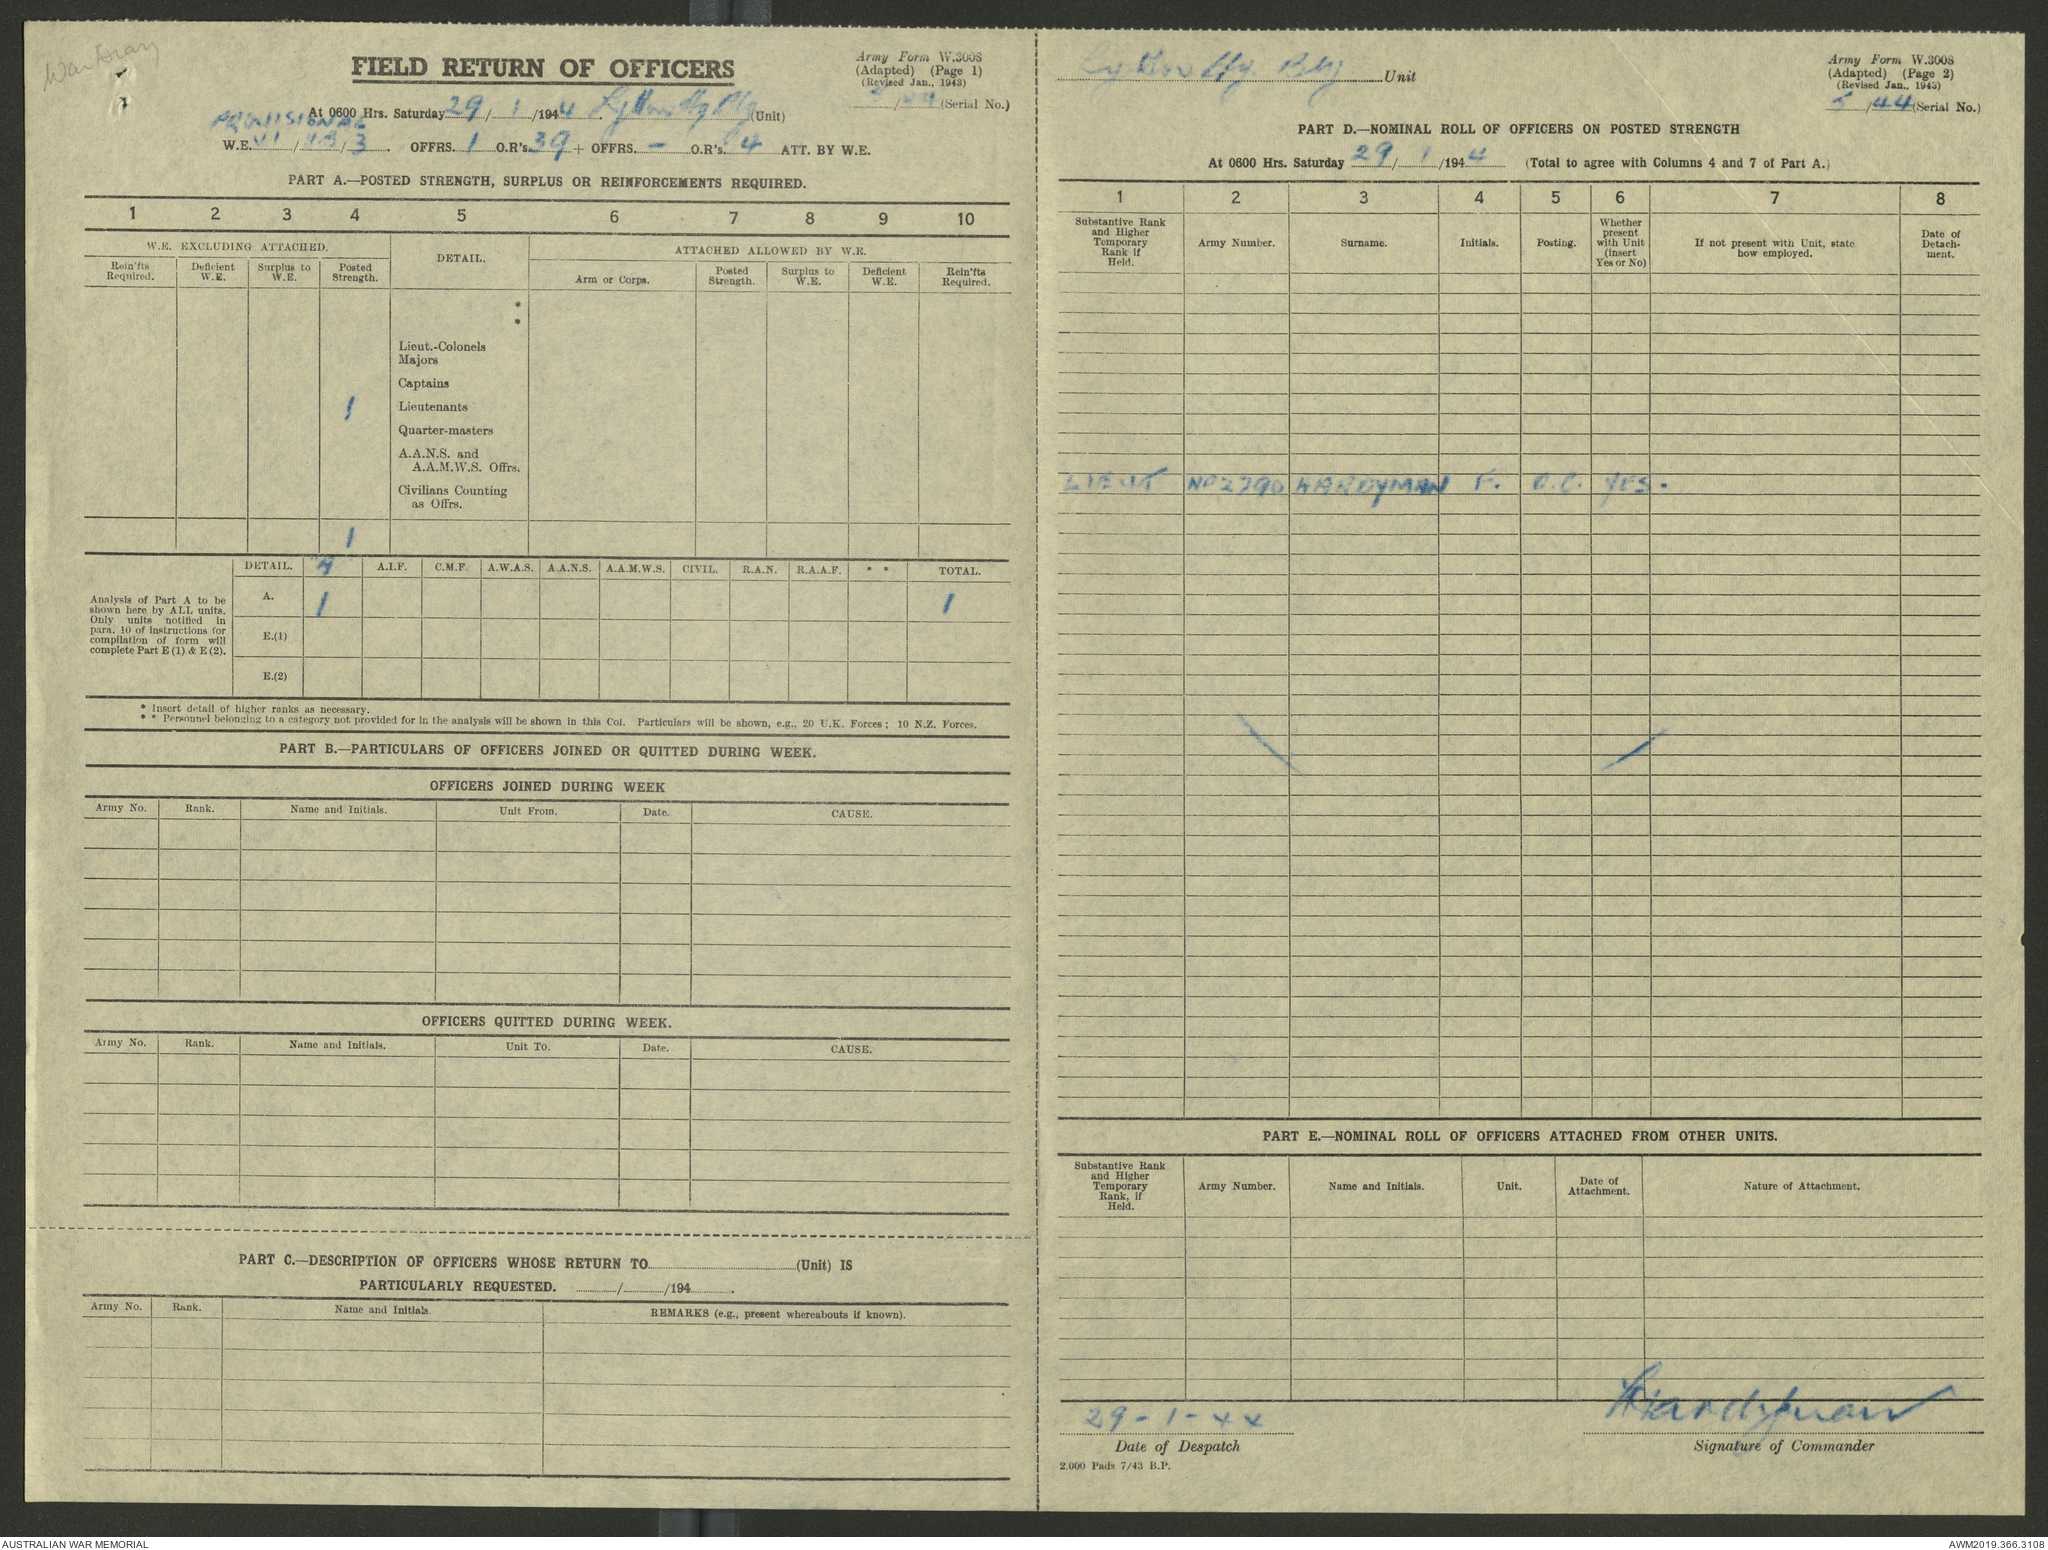 War Diary
FIELD RETURN OF OFFICERS
Army Form W.3008
(Adapted) (Page 1)
(Revised Jan., 1943)
5/44 (Serial No.)
At 0600 Hrs. Saturday 29/1/1944 (Unit)
PROVISIONAL
W.E. VI / / 3. OFFRS. 1 O.R's. 39 + OFFRS. - O.R's. 4 ATT. BY W.E.
PART A.—POSTED STRENGTH, SURPLUS OR REINFORCEMENTS REQUIRED.
1 2 3 4 5 6 7 8 9 10
W.E. EXCLUDING ATTACHED. DETAIL. ATTACHED ALLOWED BY W.E.
Rein'fts Required. Deficient W.E. Surplus to W.E. Posted Strength. Arm or Corps. Posted Strength. Surplus to W.E. Deficient W.E. Rein'fts Required.
*
*
Lieut.-Colonels
Majors
Captains
1 Lieutenants
Quarter-masters
A.A.N.S. and
A.A.M.W.S. Offrs.
Civilians Counting
as Offrs.
1
DETAIL. A.I.F. C.M.F. A.W.A.S. A.A.N.S. A.A.M.W.S. CIVIL. R.A.N. R.A.A.F. * * TOTAL.
Analysis of Part A to be
shown here by ALL units.
Only units notified in
para. 10 of instructions for
compilation of form will
complete Part E (1) & E (2).
A. 1 1
E.(1)
E.(2)
* Insert detail of higher ranks as necessary.
* * Personnel belonging to a category not provided for in the analysis will be shown in this Col. Particulars will be shown, e.g., 20 U.K. Forces; 10 N.Z. Forces.
PART B.—PARTICULARS OF OFFICERS JOINED OR QUITTED DURING WEEK.
OFFICERS JOINED DURING WEEK
Army No. Rank. Name and Initials. Unit From. Date. CAUSE.
OFFICERS QUITTED DURING WEEK.
Army No. Rank. Name and Initials. Unit To. Date. CAUSE.
PART C.—DESCRIPTION OF OFFICERS WHOSE RETURN TO (Unit) IS
PARTICULARLY REQUESTED. / /194 .
Army No. Rank. Name and Initials. REMARKS (e.g., present whereabouts if known).
Unit
Army Form W.3008
(Adapted) (Page 2)
(Revised Jan., 1943)
5/44 (Serial No.)
PART D.—NOMINAL ROLL OF OFFICERS ON POSTED STRENGTH
At 0600 Hrs. Saturday 29/1/1944 (Total to agree with Columns 4 and 7 of Part A.)
1 2 3 4 5 6 7 8
Substantive Rank and Higher Temporary Rank if Held. Army Number. Surname. Initials. Posting. Whether present with Unit (insert Yes or No) If not present with Unit, state how employed. Date of Detachment.
LIEUT NP2790 HARDYMAN F. O.C. YES.
PART E.—NOMINAL ROLL OF OFFICERS ATTACHED FROM OTHER UNITS.
Substantive Rank and Higher Temporary Rank, if Held. Army Number. Name and Initials. Unit. Date of Attachment. Nature of Attachment.
29-1-44 FHardyman
Date of Despatch Signature of Commander
2,000 Pads 7/43 B.P.
AUSTRALIAN WAR MEMORIAL AWM2019.366.3108